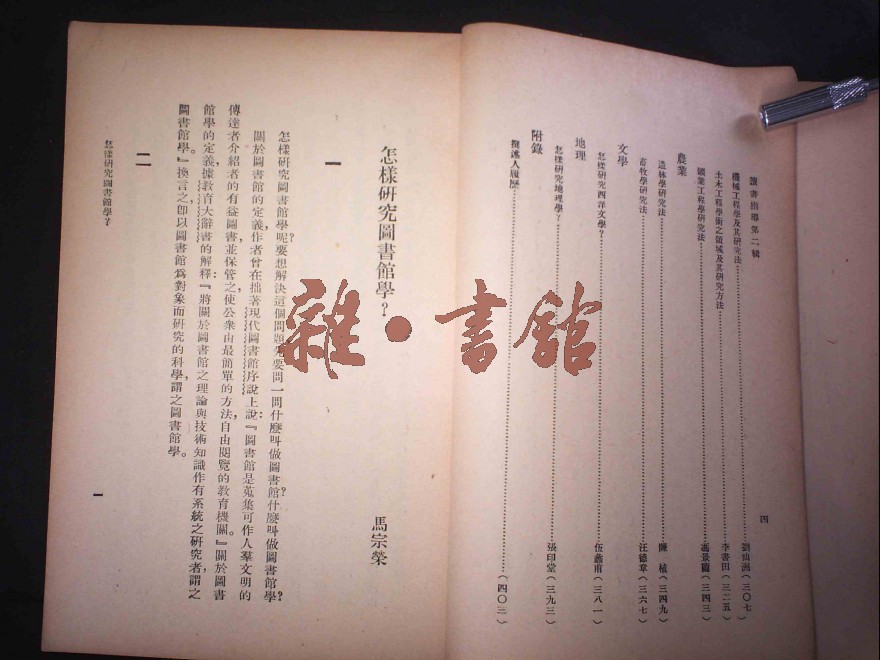 讀書指導第二輯
四
機械工程學及其研究法……劉仙洲(三〇七)
土木工程學術之領域及其研究方法……李書田(三二五)
礦業工程學研究法……馮景蘭(三四三)
農業
造林學研究法……陳 植(三四九)
畜牧學研究法……汪德章(三六七)
文學
怎樣研究西洋文學?……伍蠡甫(三八一)
地理
怎樣研究地理學?……張印堂(三九三)
附錄
撰述人履歷……(四〇三)
怎樣研究圖書館學?
馬宗榮
一
怎樣研究圖書館學呢?要想解決這個問題,先要問一問什麼叫做圖書館?什麼叫做圖書館學?
關於圖書館的定義,作者曾在拙著現代圖書館序說上說:『圖書館是蒐集可作人羣文明的
傳達者介紹者的有益圖書,並保管之,使公衆由最簡單的方法,自由閱覽的教育機關。』關於圖書
館學的定義,據教育大辭書的解釋:『將關於圖書館之理論與技術知識作有系統之研究者,謂之
圖書館學。』換言之,卽以圖書館爲對象而研究的科學,謂之圖書館學。
二
怎樣研究圖書館學?
一
雜·書館